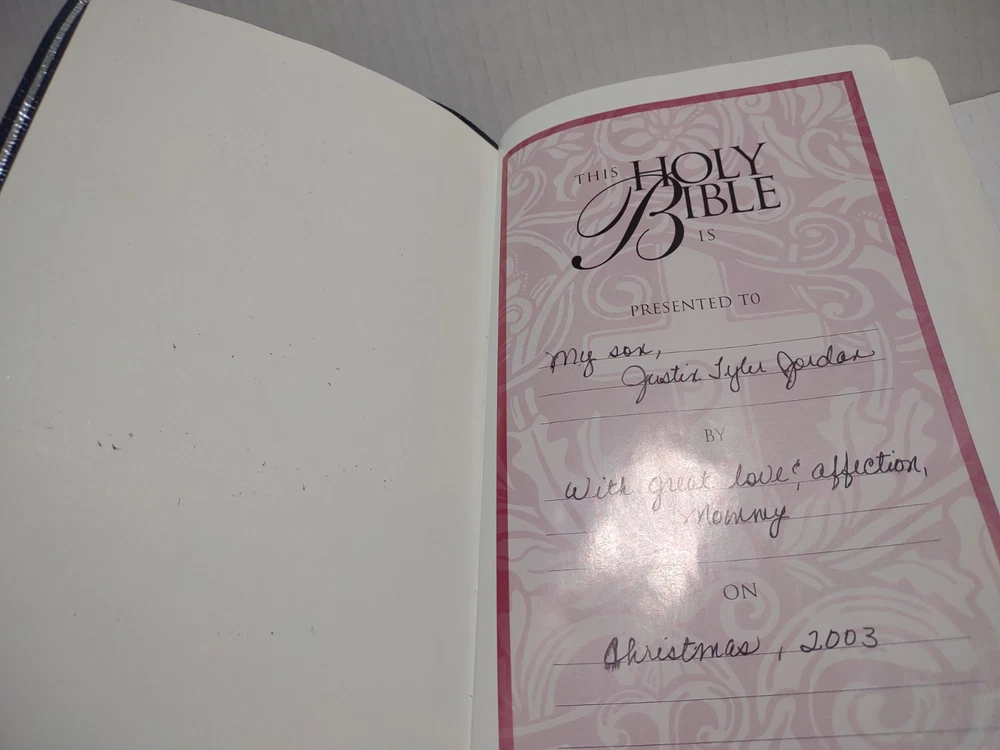 THIS HOLY
BIBLE
IS
PRESENTED TO
My son,
Justin Tyler Jordan
BY
With great love & affection,
Mommy
ON
Christmas, 2003